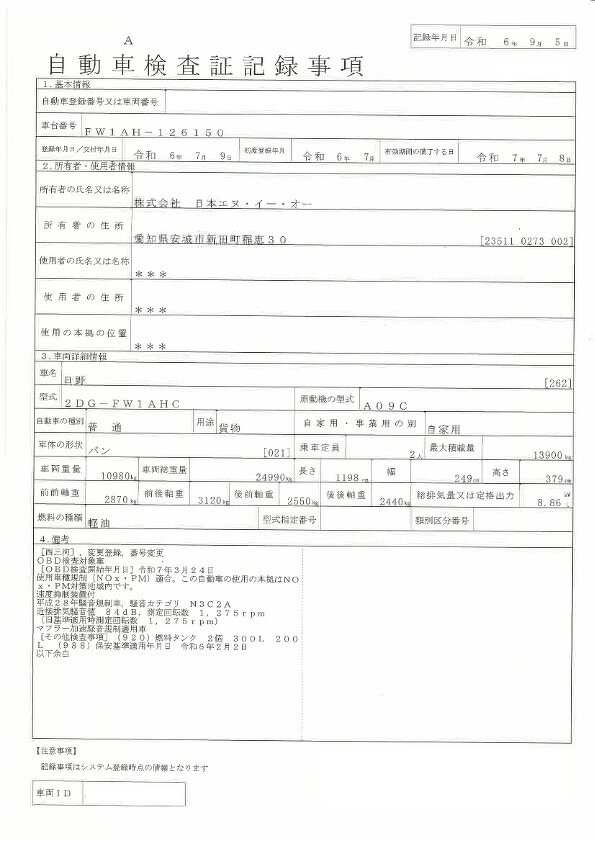 A
記録年月日 令和 6年 9月 5日
自動車検査証記録事項
1.基本情報
自動車登録番号又は車両番号
車台番号 FW1AH-126150
登録年月日/交付年月日 令和 6年 7月 9日 初度登録年月 令和 6年 7月 有効期間の満了する日 令和 7年 7月 8日
2.所有者・使用者情報
所有者の氏名又は名称 株式会社 日本エヌ・イー・オー
所有者の住所 愛知県安城市新田町稲恵30 [23511 0273 002]
使用者の氏名又は名称 ***
使用者の住所 ***
使用の本拠の位置 ***
3.車両詳細情報
車名 日野 [262]
型式 2DG-FW1AHC 原動機の型式 A09C
自動車の種別 普通 用途 貨物 自家用・事業用の別 自家用
車体の形状 バン [021] 乗車定員 2人 最大積載量 13900kg
車両重量 10980kg 車両総重量 24990kg 長さ 1198cm 幅 249cm 高さ 379cm
前前軸重 2870kg 前後軸重 3120kg 後前軸重 2550kg 後後軸重 2440kg 総排気量又は定格出力 8.86 kW L
燃料の種類 軽油 型式指定番号 類別区分番号
4.備考
[西三河],変更登録,番号変更
OBD検査対象車
[OBD検査開始年月日]令和7年3月24日
使用車種規制(NOx・PM)適合。この自動車の使用の本拠はNO
x・PM対策地域内です。
速度抑制装置付
平成28年騒音規制車,騒音カテゴリ N3C2A
近接排気騒音値 84dB,測定回転数 1,275rpm
(旧基準適用時測定回転数 1,275rpm)
マフラー加速騒音規制適用車
[その他検査事項](920)燃料タンク 2個 300L 200
L (988)保安基準適用年月日 令和6年2月2日
以下余白
【注意事項】
記録事項はシステム登録時点の情報となります
車両ID